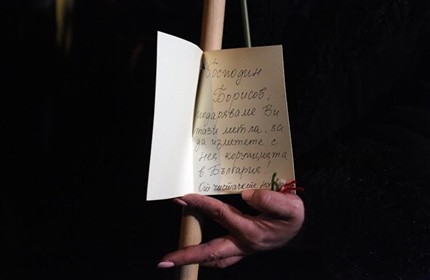 Господин
Борисов,
подаряваме Ви
тази метла, за
да изметете с
нея корупцията
в България!
От чистачките на